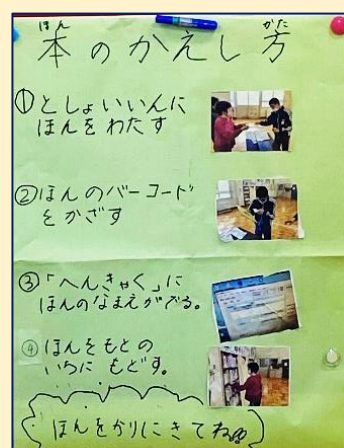 本のかえし方
ほん かた
①としょいいんに
ほんをわたす
②ほんのバーコード
をかざす
③「へんきゃく」に
ほんのなまえがでる。
④ほんをもとの
いちに もどす。
ほんをかりにきてね